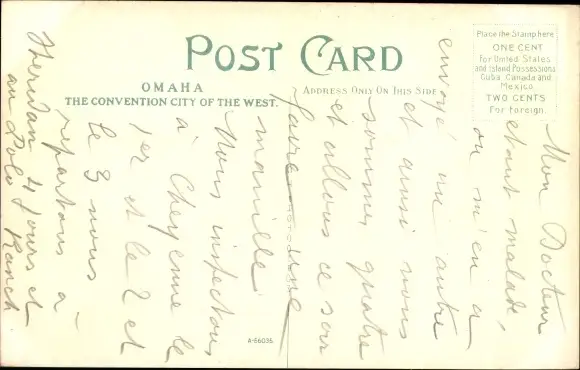 POST CARD
OMAHA
THE CONVENTION CITY OF THE WEST.
ADDRESS ONLY ON THIS SIDE
Place the Stamp here
ONE CENT
For United States
and Island Possessions
Cuba, Canada and
Mexico
TWO CENTS
For Foreign.
A-56035
Mon Docteur
étant malade,
on m'en a
envoyé un autre
et ainsi nous
sommes quatre
et allons ce soir
faire une
manille
Nous inspectons
à Cheyenne le
1er et le 2 et
le 3 nous
repartons à
Sheridan 4 jours et
au Polo Ranch